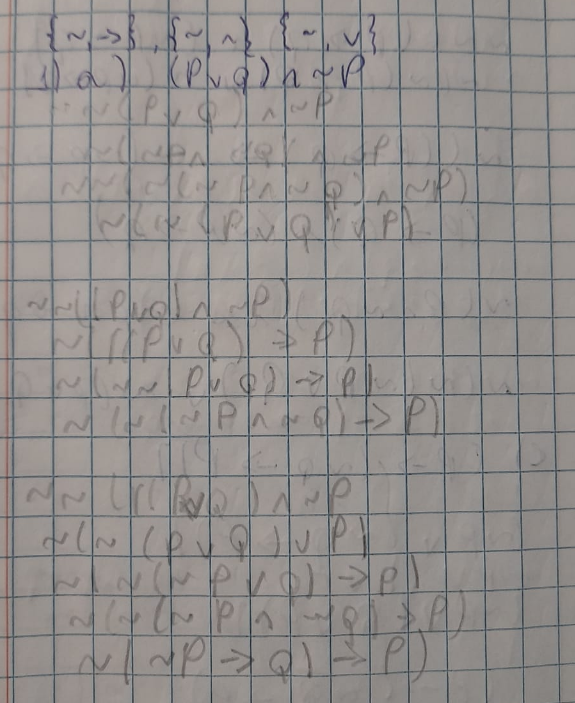 {~, →}, {~, ∧} {~, ∨}
1) a) (P ∨ Q) ∧ ~P
~(P ∨ Q) ∧ ~P
~~(~(~P ∧ ~Q) ∧ ~P)
~(~(P ∨ Q) ∨ P)
~~((P ∨ Q) ∧ ~P)
~((P ∨ Q) → P)
~(~~(P ∨ Q) → P)
~(~(~P ∧ ~Q) → P)
~~(((P ∨ Q) ∧ ~P
~(~(P ∨ Q) ∨ P)
~(~(~P ∨ Q) → P)
~(~(~P ∧ ~Q) → P)
~(~P → Q) → P)